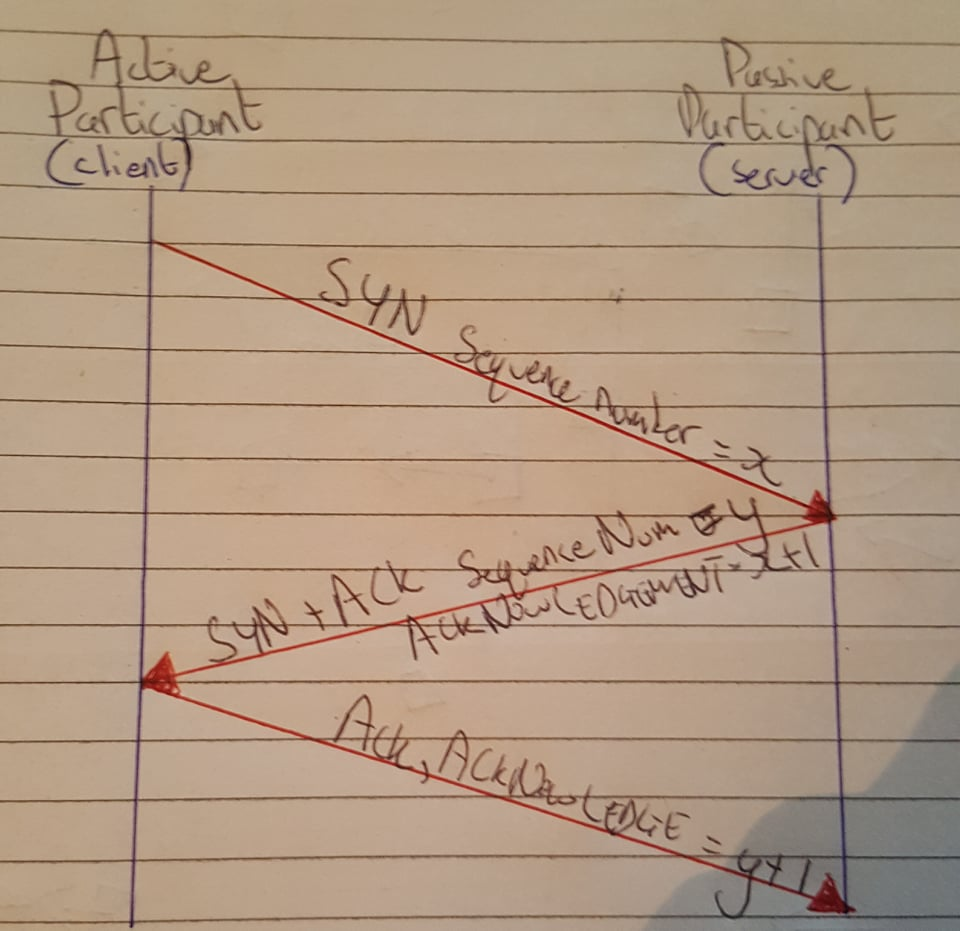 Active
Participant
(client)
Passive
Participant
(server)
SYN Sequence number = x
SYN + ACK Sequence Num = y
ACKNOWLEDGEMENT = x+1
Ack, ACKNOWLEDGE = y+1